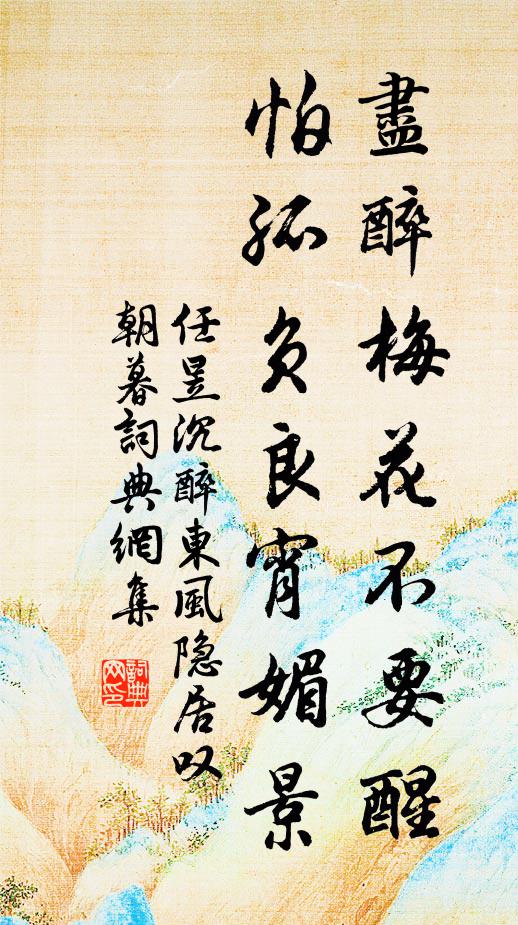 盡醉梅花不要醒
怕孤負良宵媚景
任昱沉醉東風隐居叹
朝暮詞典網集
詞典
网印